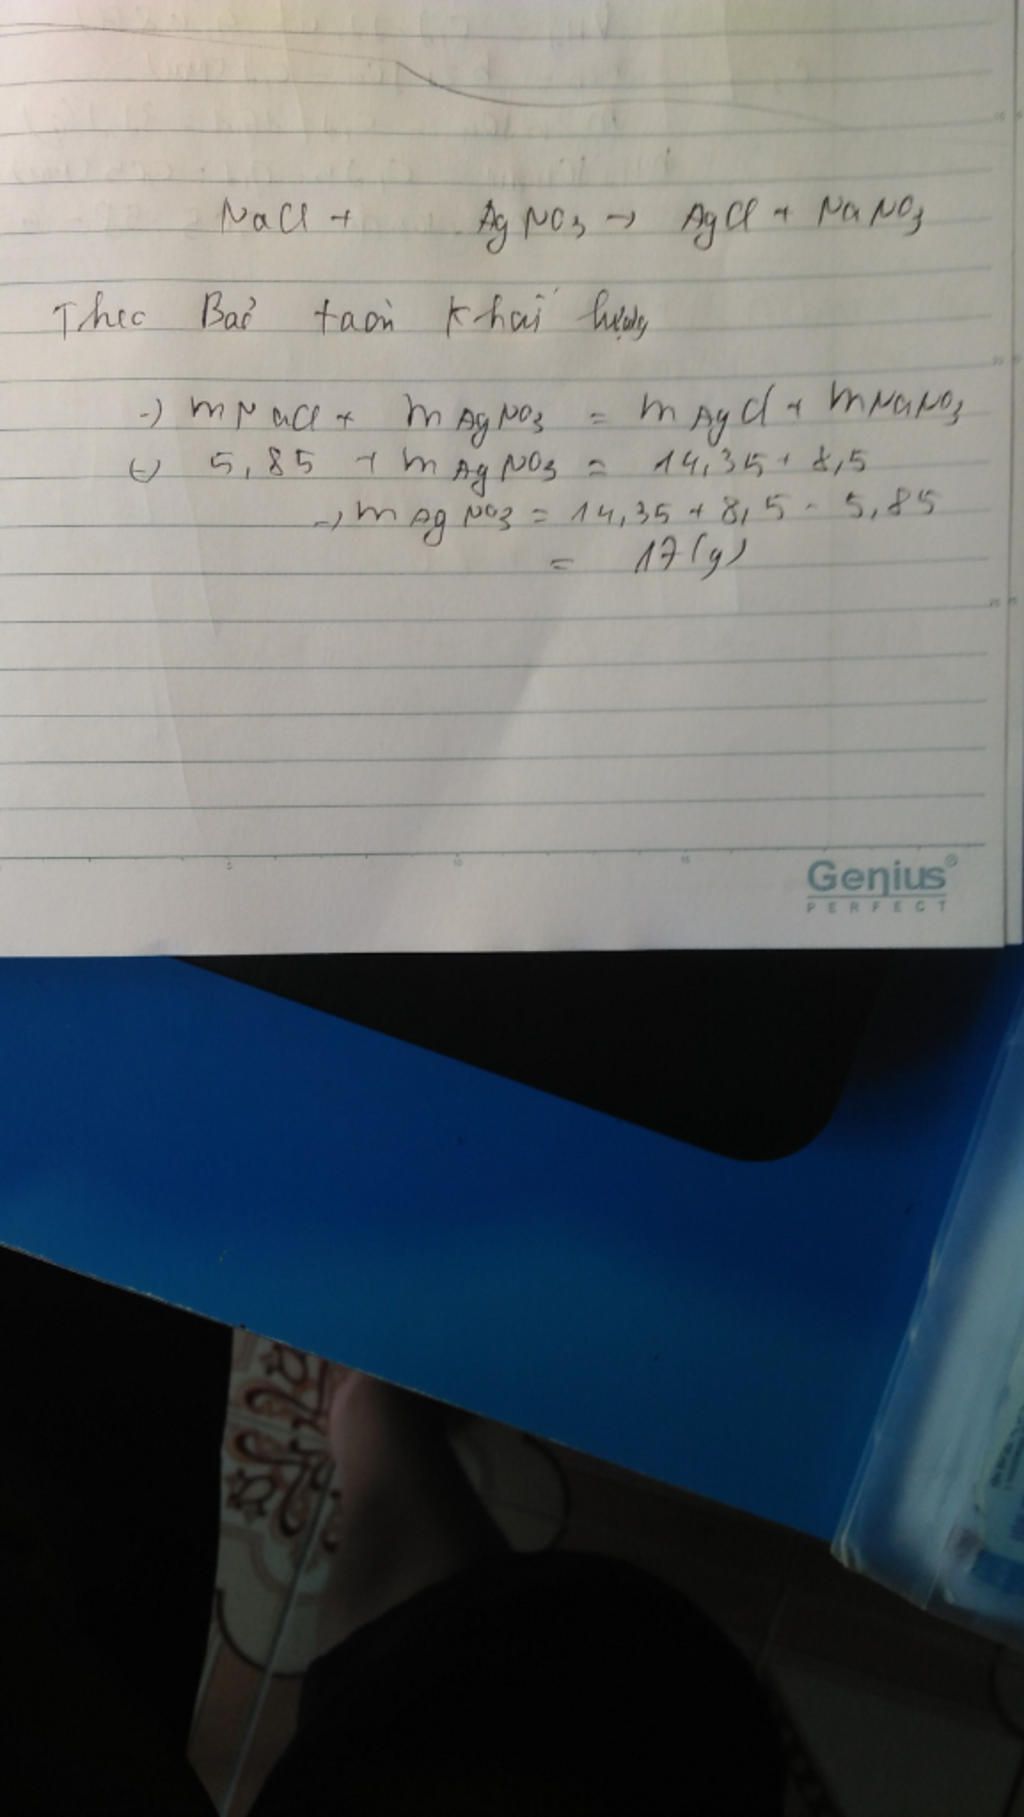 NaCl + AgNO3 → AgCl + NaNO3
Theo Bảo toàn khối lượng
→ mNaCl + mAgNO3 = mAgCl + mNaNO3
(-) 5,85 + mAgNO3 = 14,35 + 8,5
→ mAgNO3 = 14,35 + 8,5 - 5,85
= 17(g)
Genius®
PERFECT